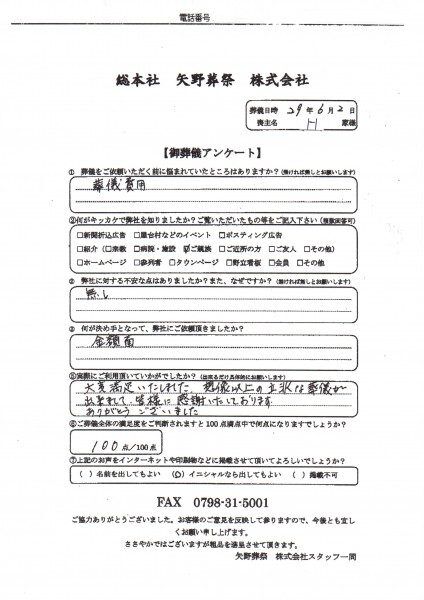 電話番号
総本社 矢野葬祭 株式会社
葬儀日時 29年6月2日
喪主名 H 家様
【御葬儀アンケート】
① 葬儀をご依頼いただく前に悩まれていたところはありますか?(無ければ無しとお願いします)
葬儀費用
②何がキッカケで弊社を知りましたか?ご覧いただいたもの等をご記入下さい(複数回答可)
□新聞折込広告 □屋台村などのイベント □ポスティング広告
□紹介(□宗教 □病院・施設 ☑ご親族 □ご近所の方 □ご友人 □その他)
□ホームページ □参列者 □タウンページ □野立看板 □会員 □その他
② 弊社に対する不安な点はありましたか?また、なぜですか?(無ければ無しとお願いします)
無し
③ 何が決め手となって、弊社にご依頼頂きましたか?
金額面
⑤実際にご利用頂いていかがでしたか?(出来るだけ具体的にお願いします)
大変満足いたしました。想像以上の立派な葬儀が
出来まして、皆様に感謝いたしております
ありがとうございました
⑥ご葬儀全体の満足度をご判断されますと100点満点中で何点になりますでしょうか?
100点/100点
⑦上記のお声をインターネットや印刷物などに掲載させて頂いてよろしいでしょうか?
( )名前を出してもよい (○)イニシャルなら出してもよい ( )掲載不可
FAX 0798-31-5001
ご協力ありがとうございました。お客様のご意見を反映して参りますので、今後とも宜し
くお願い申し上げます。
ささやかではございますが粗品を進呈させて頂きます。
矢野葬祭 株式会社スタッフ一同